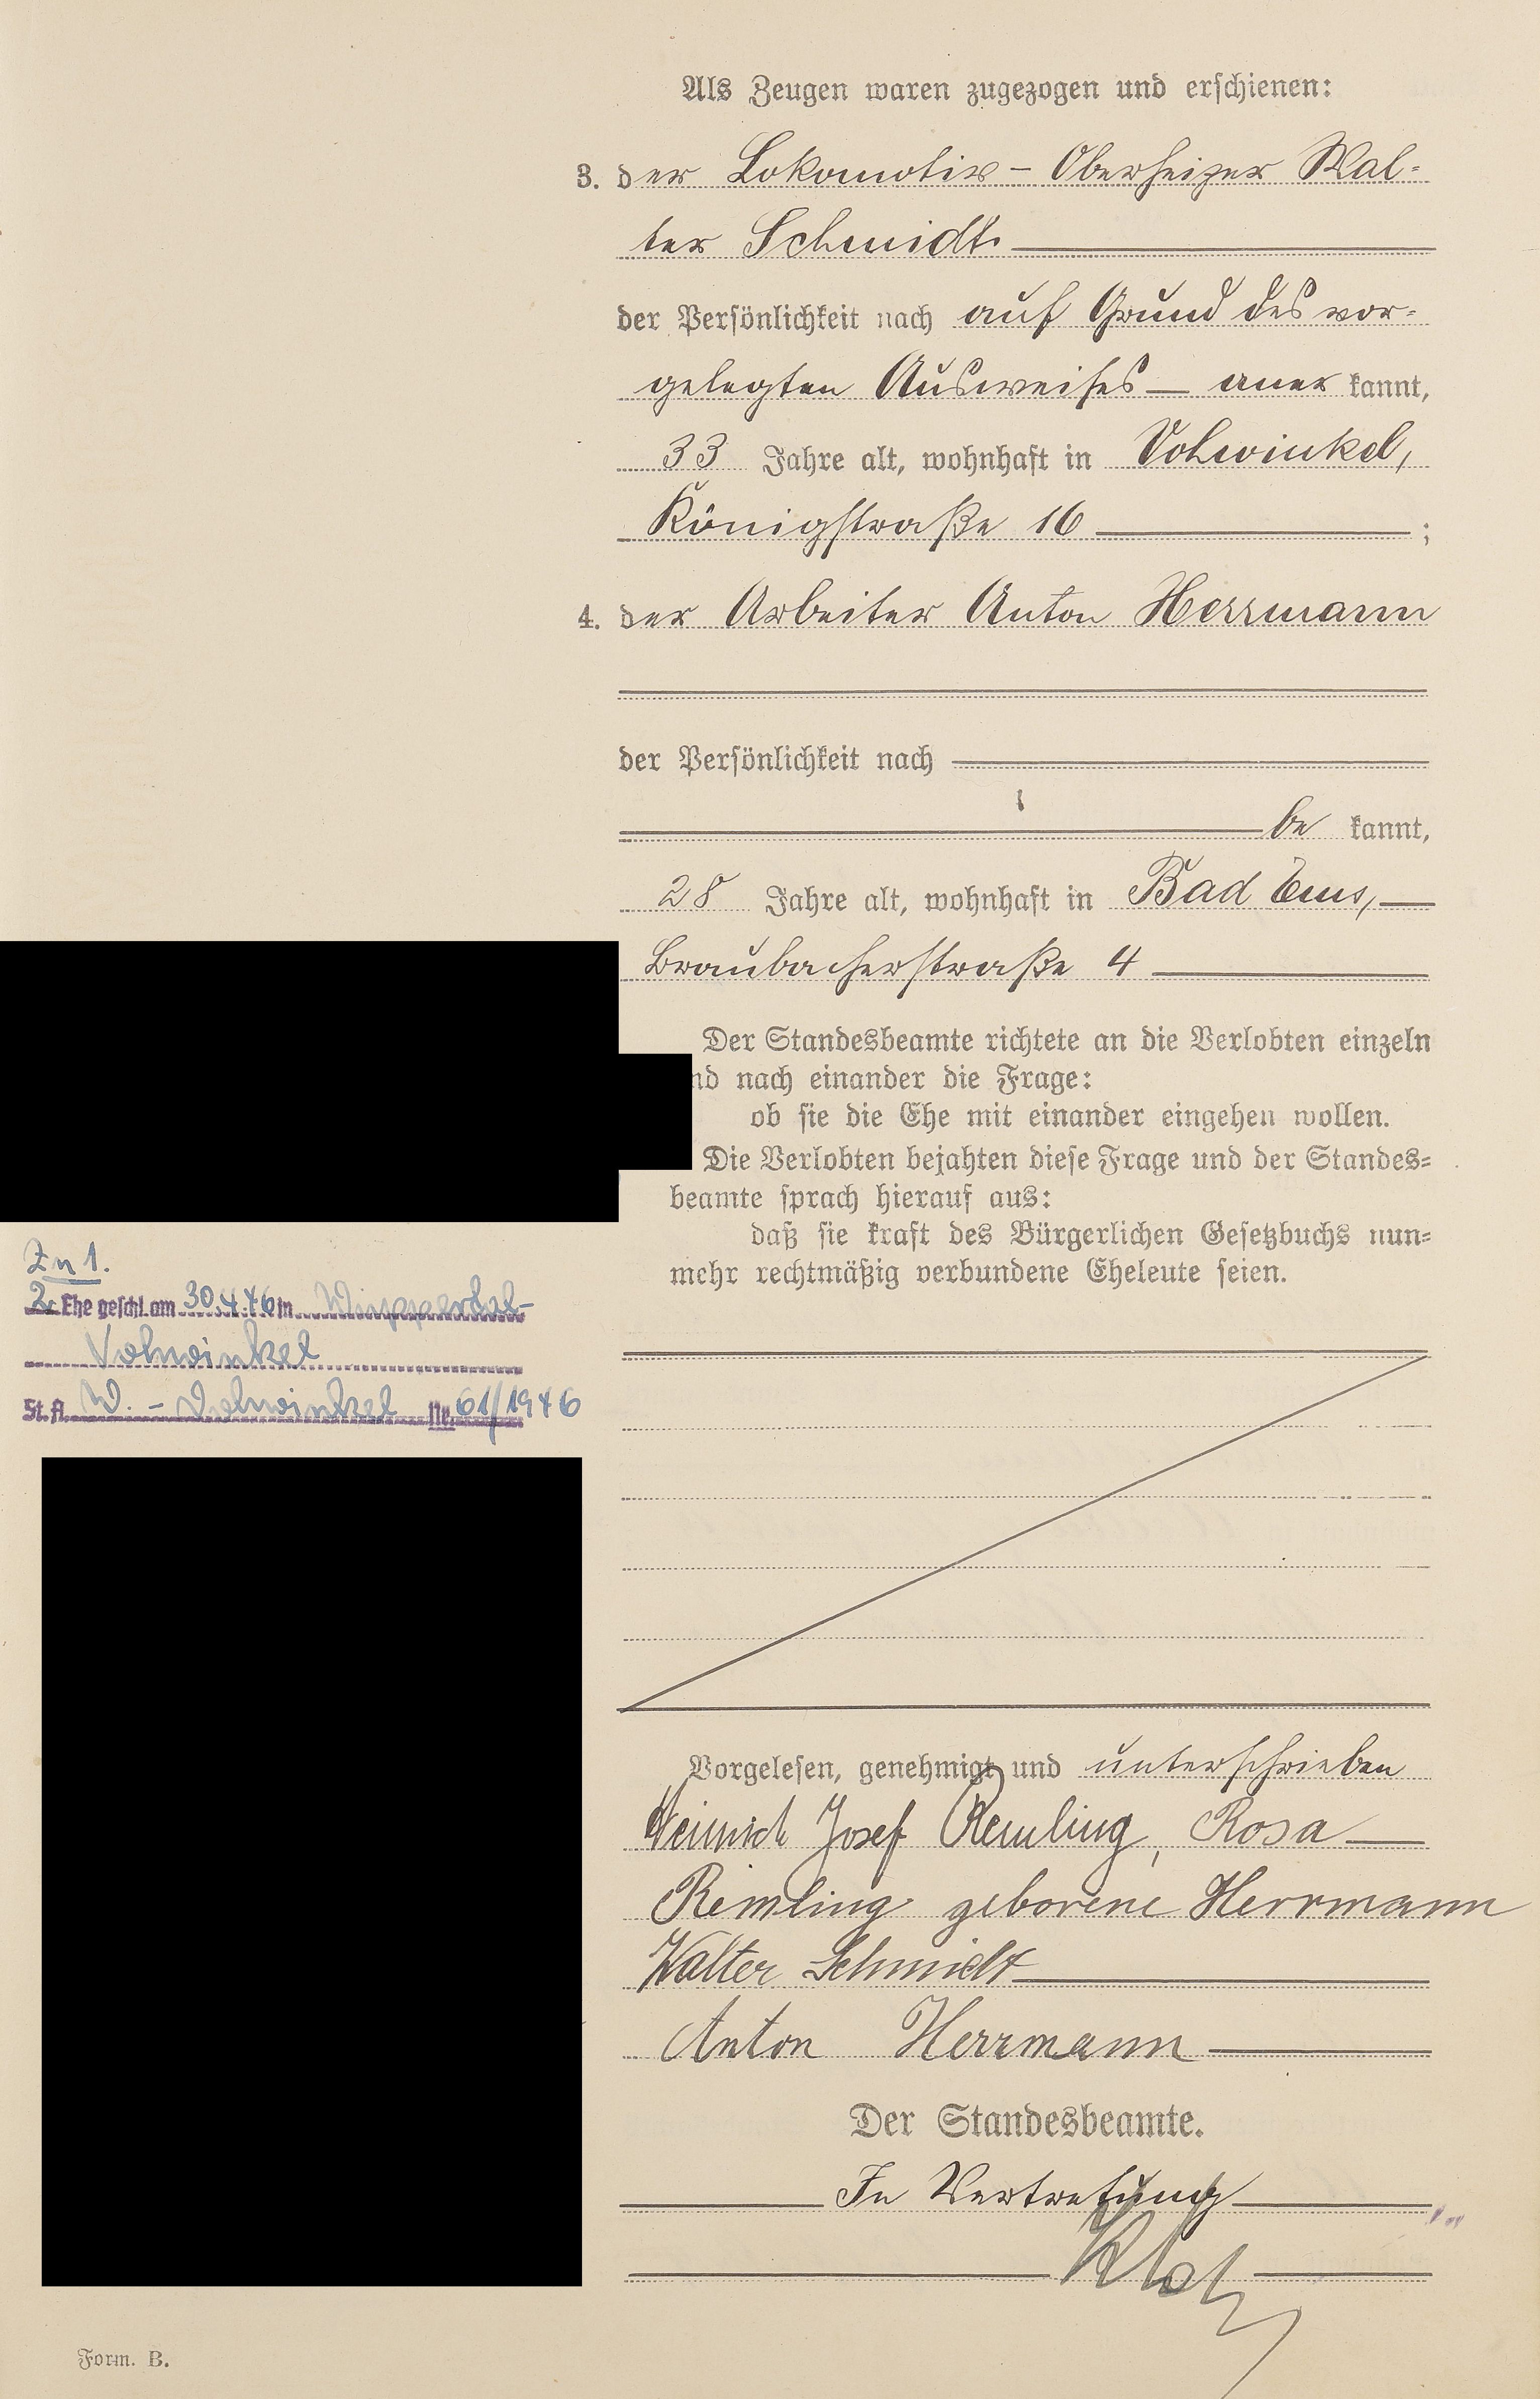 Als Zeugen waren zugezogen und erschienen:
3. der Lokomotiv - Oberheizer Wal-
ter Schmidt
der Persönlichkeit nach auf Grund des vor-
gelegten Ausweises - aner kannt,
33 Jahre alt, wohnhaft in Vohwinkel,
Königstraße 16 ;
4. der Arbeiter Anton Herrmann
der Persönlichkeit nach
be kannt,
28 Jahre alt, wohnhaft in Bad Ems,
Braubacherstraße 4
Der Standesbeamte richtete an die Verlobten einzeln
nd nach einander die Frage:
ob sie die Ehe mit einander eingehen wollen.
Die Verlobten bejahten diese Frage und der Standes-
beamte sprach hierauf aus:
daß sie kraft des Bürgerlichen Gesetzbuchs nun-
mehr rechtmäßig verbundene Eheleute seien.
Zu 1.
2. Ehe geschl. am 30.4.46 in Wuppertal-
Vohwinkel
St. A. W. - Vohwinkel Nr. 61/1946
Vorgelesen, genehmigt und unterschrieben
Heinrich Josef Remling, Rosa
Remling geborene Herrmann
Walter Schmidt
Anton Herrmann
Der Standesbeamte.
In Vertretung
Form. B.